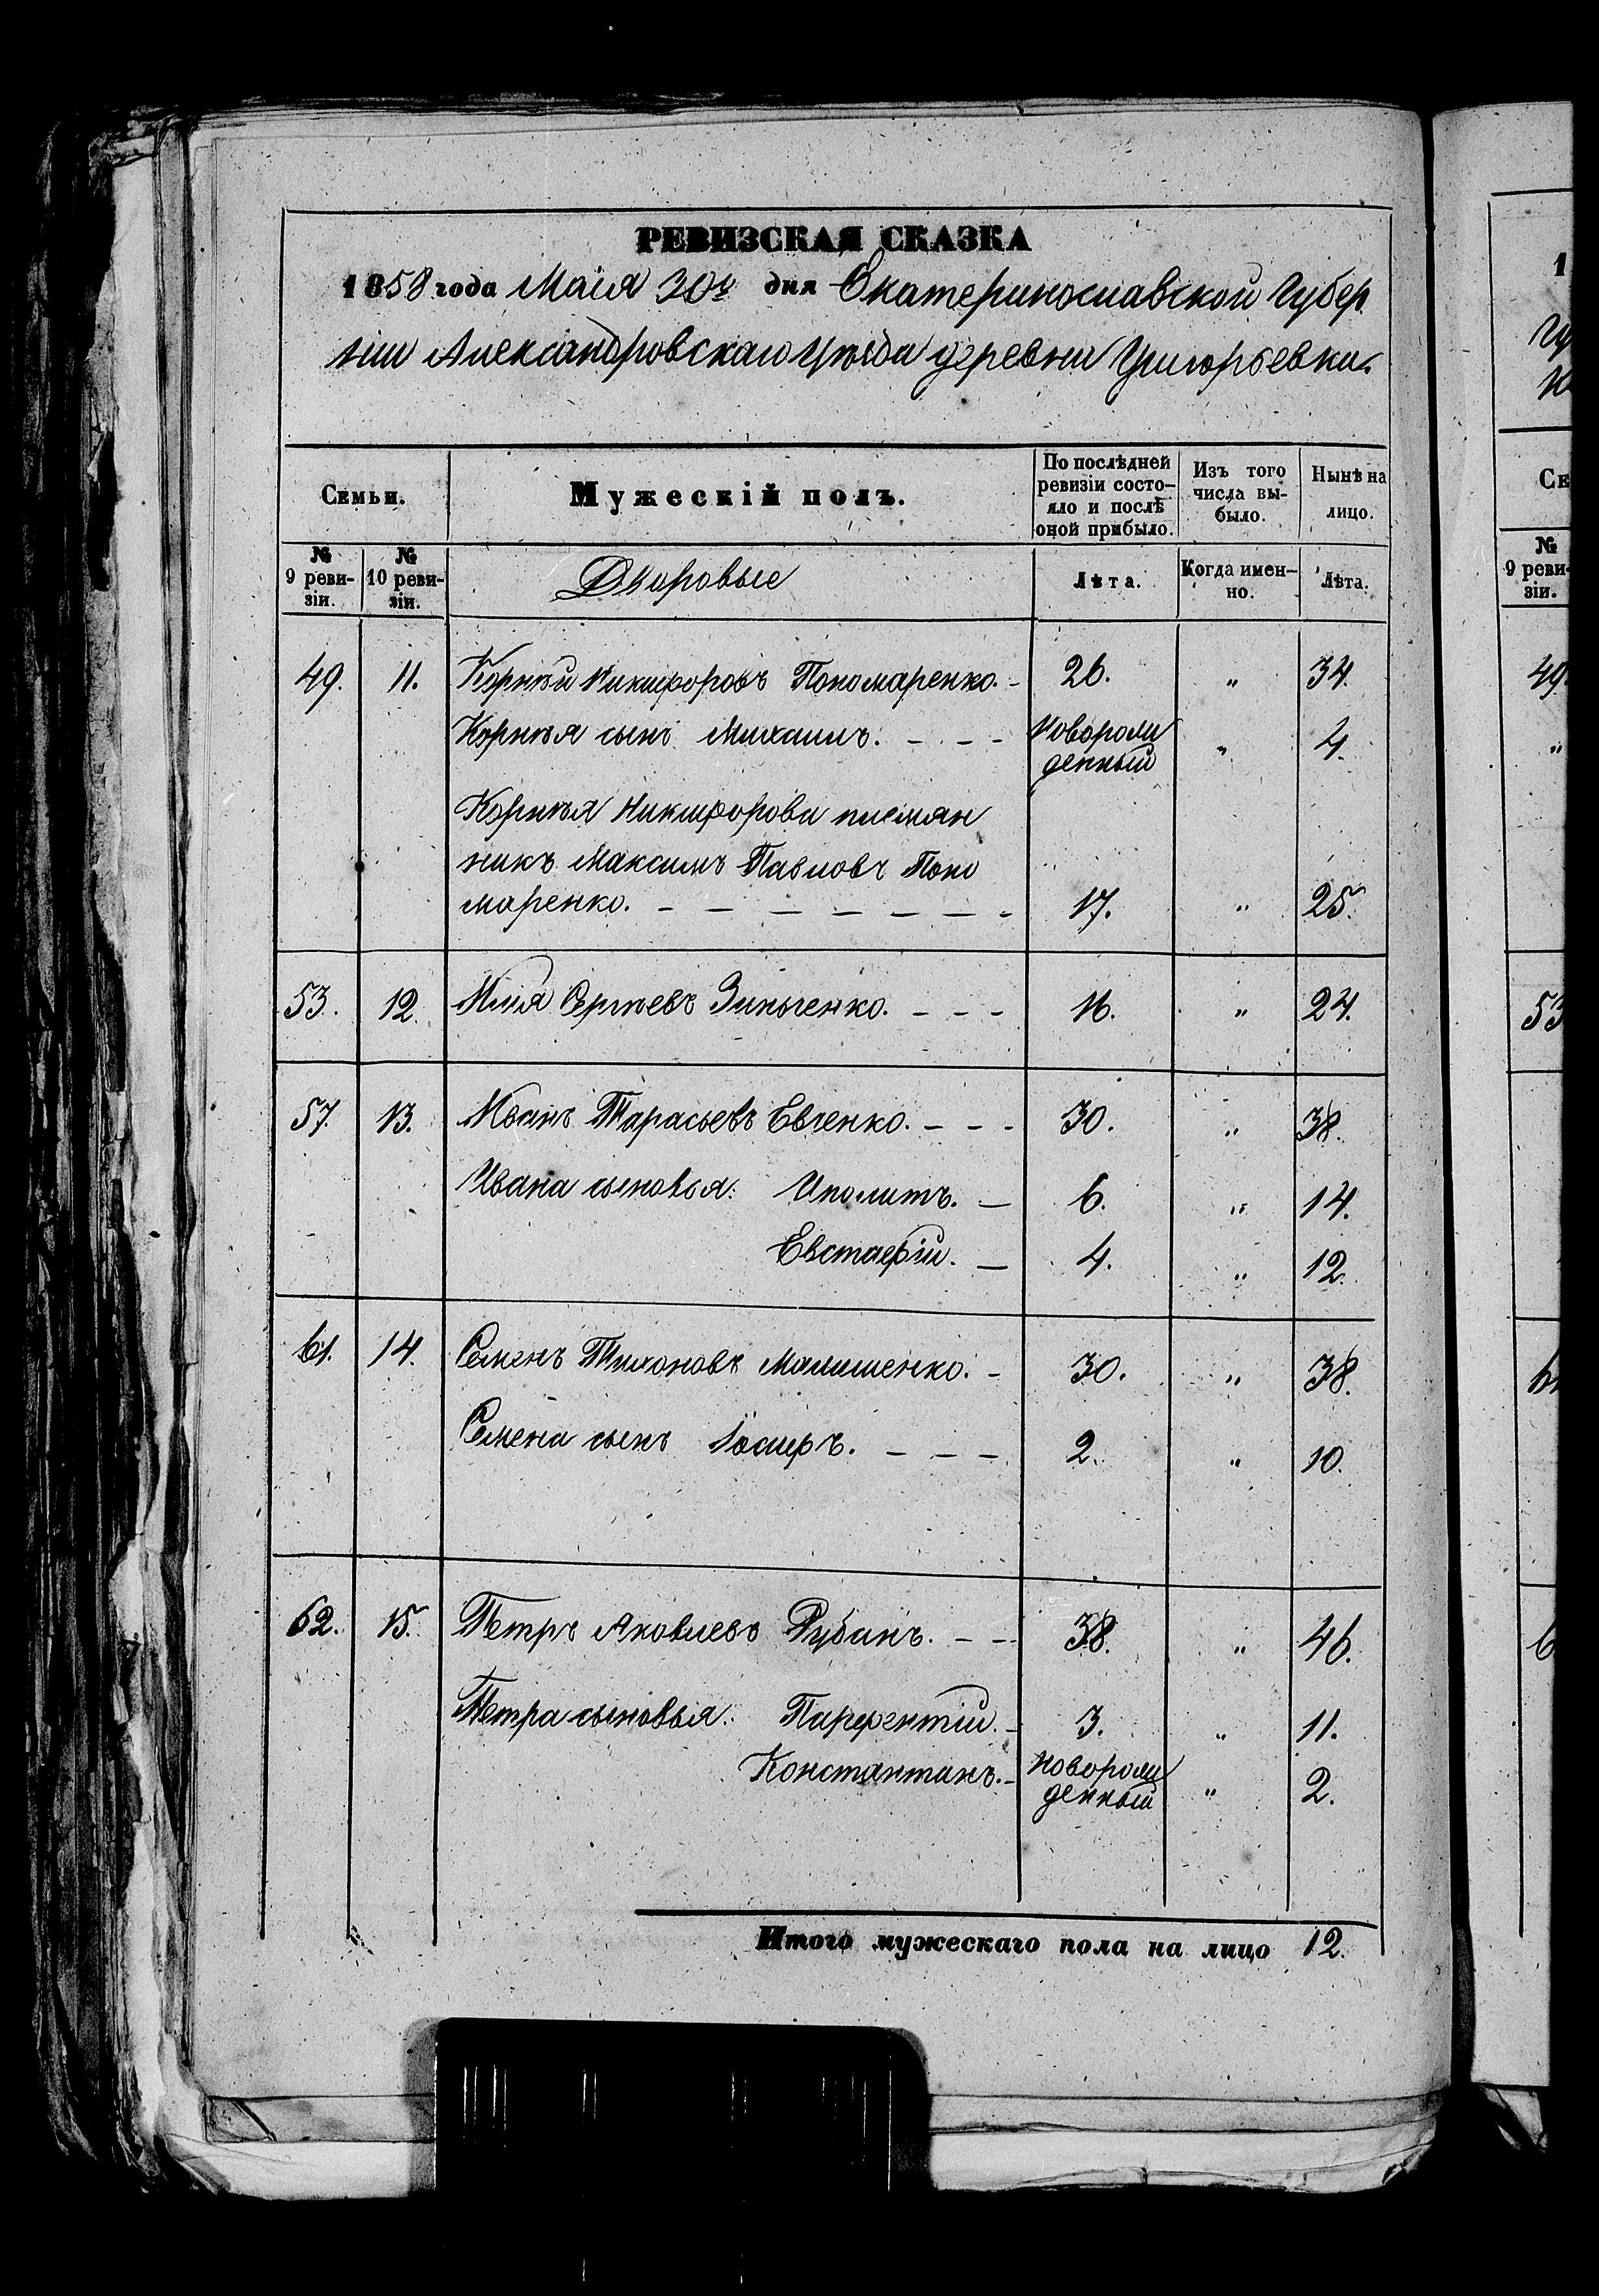 РЕВИЗСКАЯ СКАЗКА
1858 года Маія 30го дня Екатеринославской Губер
ніи Александровскаго Уѣзда деревни Григорьевки.
Семьи. Мужескій полъ. По послѣдней ревизіи состо- яло и послѣ оной прибыло. Изъ того числа вы- было. Нынѣ на лицо.
№ 9 реви- зіи. № 10 реви- зіи. Дворовые Лѣта. Когда имен- но. Лѣта.
49. 11. Корнѣй Никифоровъ Пономаренко. - 26. „ 34.
Корнѣя сынъ Михаилъ. - - - новорож денный „ 4.
Корнѣя Никифорова племян
никъ Максимъ Павловъ Поно
маренко. - - - - - - - 17. „ 25.
53. 12. Илія Сергѣевъ Зинченко. - - - 16. „ 24.
57. 13. Иванъ Тарасьевъ Евченко. - - - 30. „ 38.
Ивана сыновья: Иполитъ. - 6. „ 14.
Евстафій. - 4. „ 12.
61. 14. Семенъ Тихоновъ Малишенко. - 30. „ 38.
Семена сынъ Іосифъ. - - - 2. „ 10.
62. 15. Петръ Яковлевъ Рубанъ. - - 38. „ 46.
Петра сыновья: Парфентій. - 3. „ 11.
Константинъ. - новорож денный „ 2.
Итого мужескаго пола на лицо 12.
1
Гу
н
Се
№
9 реви-
зіи.
49.
„
53
6